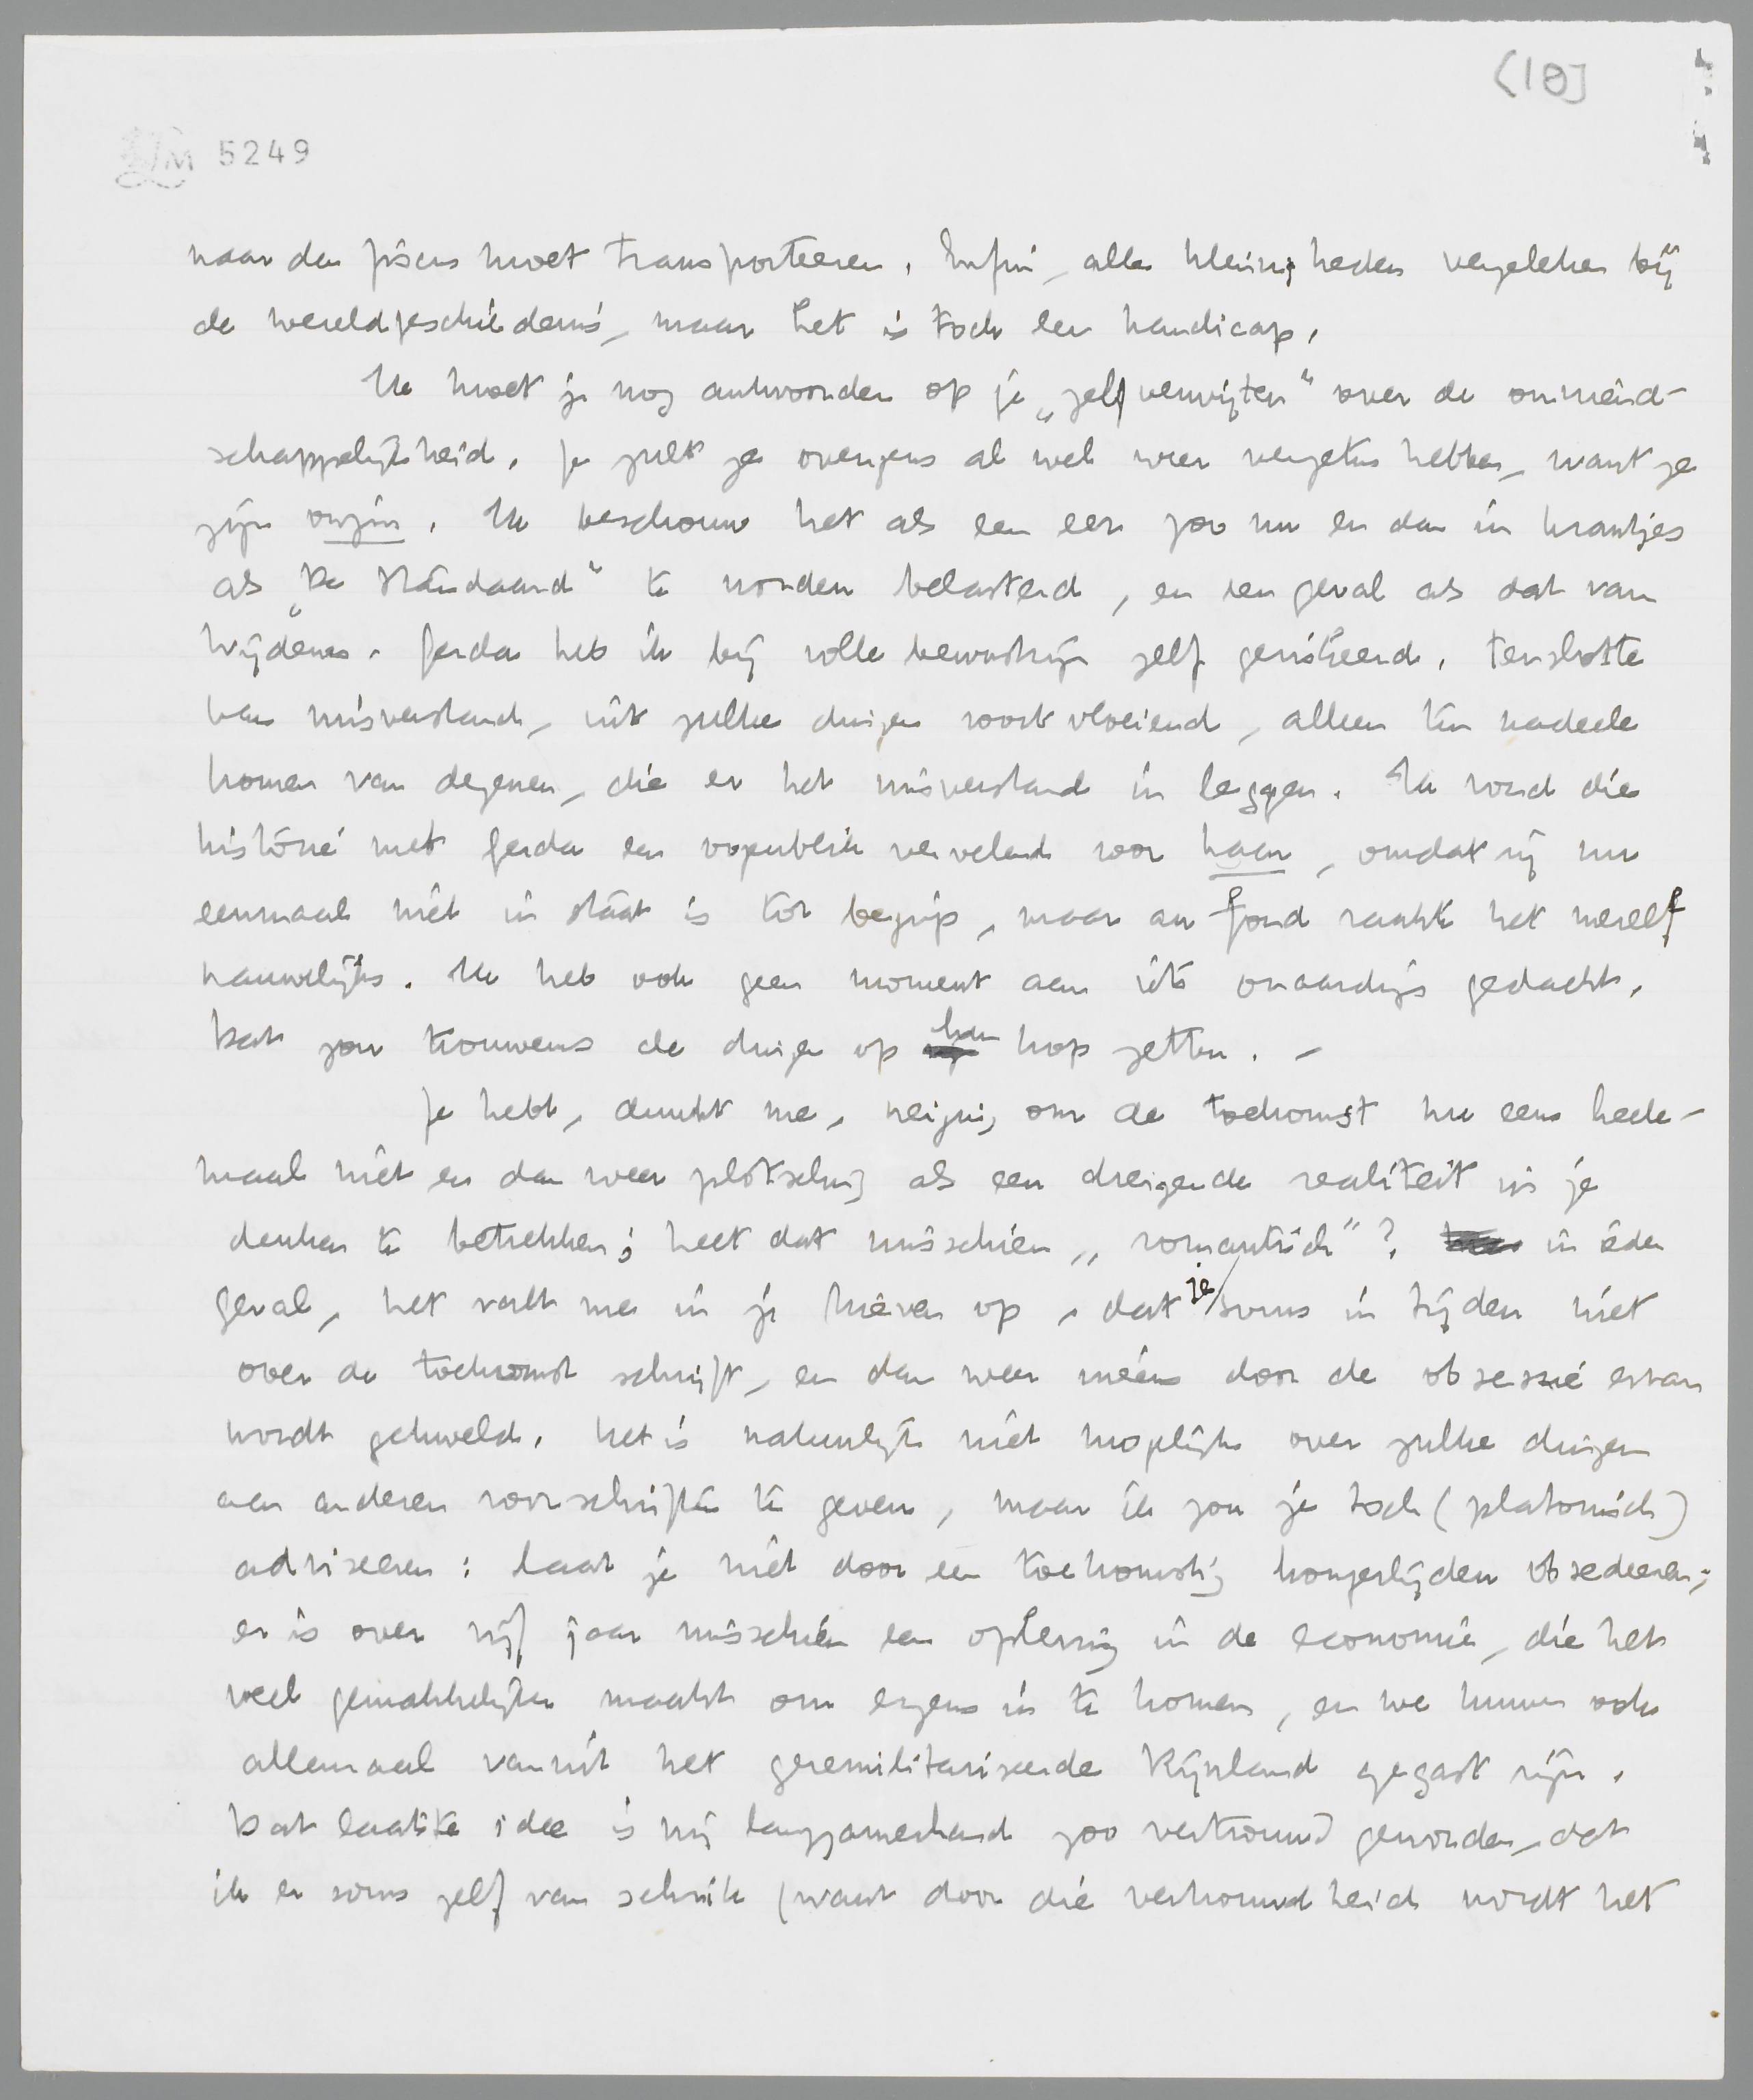 (10]
LM 5249
naar den fiscus moet transporteeren. Enfin, alles kleinigheden vergeleken bij
de wereldgeschiedenis, maar het is toch een handicap.
Ik moet je nog antwoorden op je „zelfverwijten" over de onvriend-
schappelijkheid. Je zult ze overigens al wel weer vergeten hebben, want ze
zijn onzin. Ik beschouw het als een eer zoo nu en dan in krantjes
als „De Standaard" te worden belasterd, en een geval als dat van
Wijdenes-Ferda heb ik bij volle bewustzijn zelf geriskeerd. Tenslotte
kan misverstand, uit zulke dingen voortvloeiend, alleen ten nadeele
komen van degenen, die er het misverstand in leggen. Ik vond die
historie met Ferda een oogenblik vervelend voor haar, omdat zij nu
eenmaal niet in staat is tot begrip, maar au fond raakte het mezelf
nauwelijks. Ik heb ook geen moment aan iets onaardigs gedacht.
Dat zou trouwens de dingen op hun kop zetten. –
Je hebt, dunkt me, neiging om de toekomst nu eens heele-
maal niet en dan weer plotseling als een dreigende realiteit in je
denken te betrekken; heet dat misschien „romantisch"? in ieder
geval, het valt me in je brieven op, dat je soms in tijden niet
over de toekomst schrijft, en dan weer ineens door de obsessie ervan
wordt gekweld. Het is natuurlijk niet mogelijk over zulke dingen
aan anderen voorschriften te geven, maar ik zou je toch (platonisch)
adviseeren: laat je niet door een toekomstig hongerlijden obsedeeren;
er is over vijf jaar misschien een opleving in de economie, die het
veel gemakkelijker maakt om ergens in te komen, en we kunnen ook
allemaal vanuit het geremilitariseerde Rijnland gegast zijn.
Dat laatste idee is mij langzamerhand zoo vertrouwd geworden, dat
ik er soms zelf van schrik (want door die vertrouwdheid wordt het